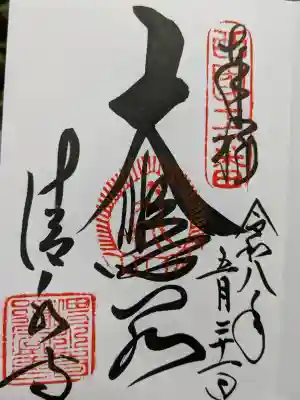 奉拝
令和八年
五月三十一日
大悲閣
清水寺